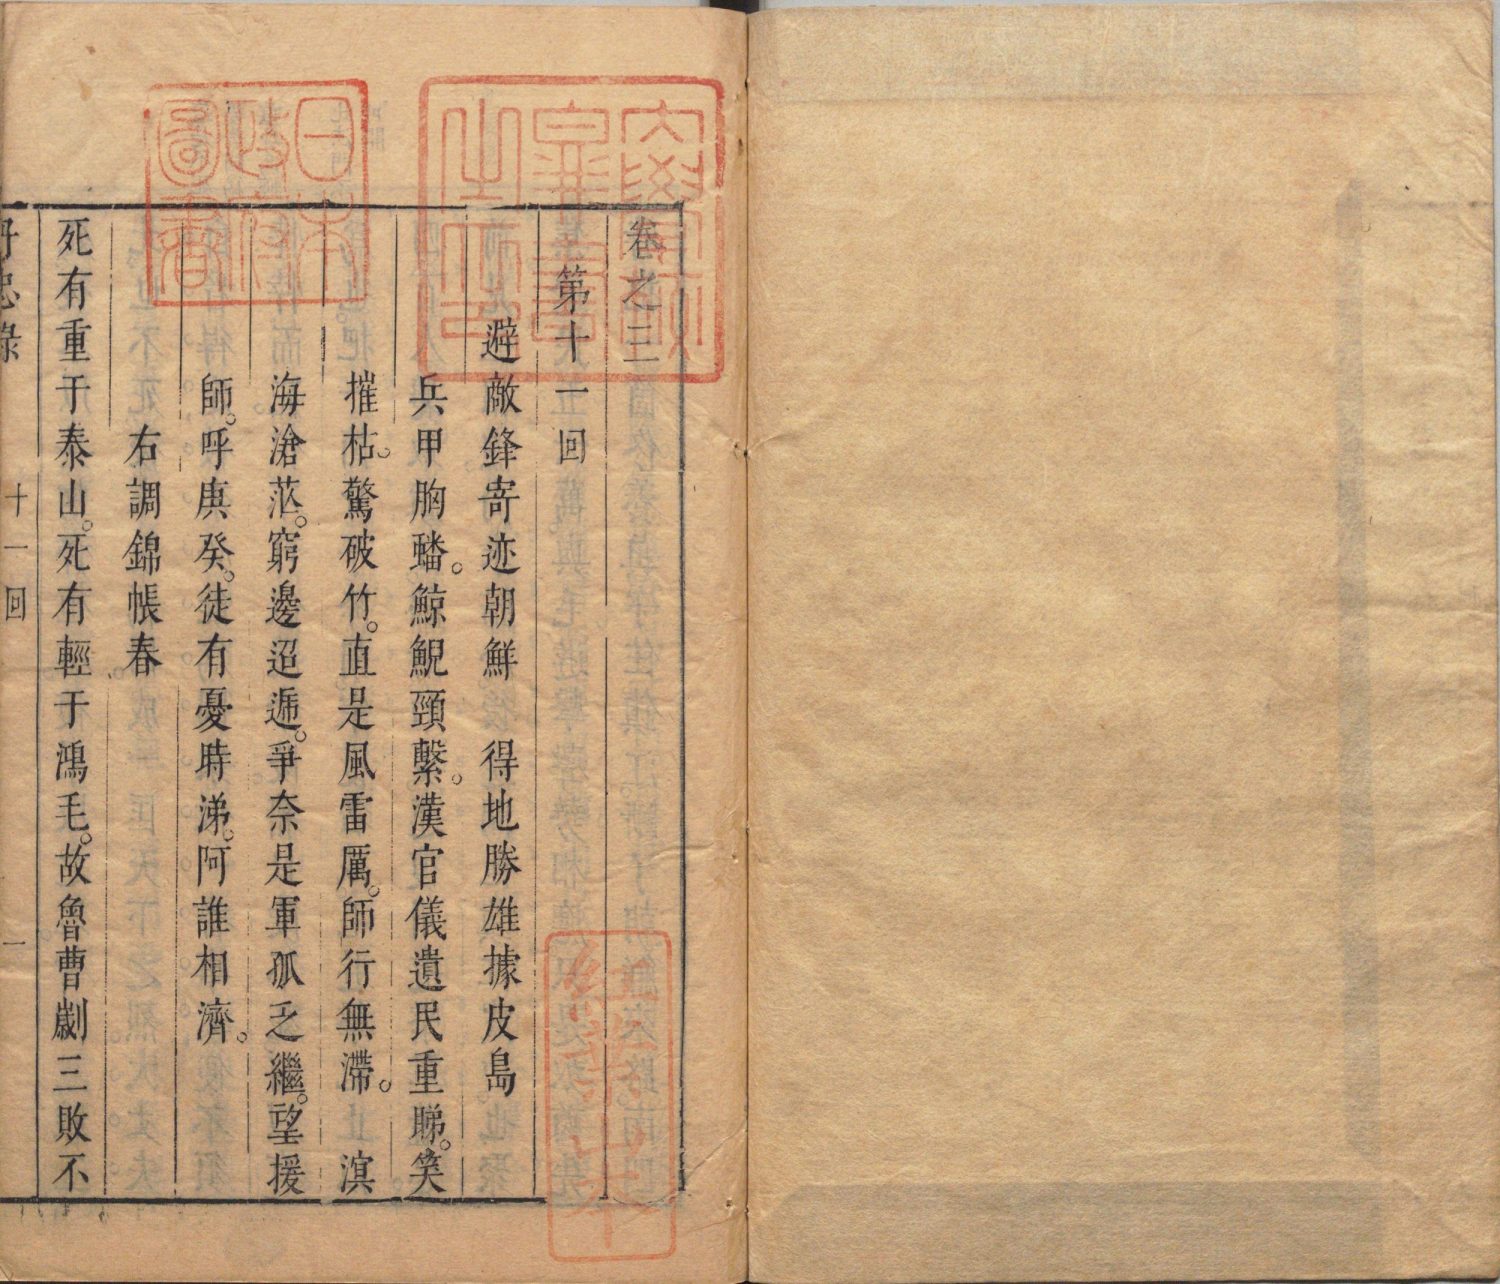 卷之三
第十一回
避敵鋒寄迹朝鮮　得地勝雄據皮島
兵甲胸蟠。鯨鯢頸繫。漢官儀遺民重睇。笑
摧枯。驚破竹。直是風雷厲。師行無滯。止溟
海滄茫。窮邊迢遞。爭奈是軍孤乏繼。望援
師。呼庚癸。徒有憂時涕。阿誰相濟。
右調錦帳春
死有重于泰山。死有輕于鴻毛。故魯曹劌三敗不
丹忠錄
十一回
一
日本
政府
圖書